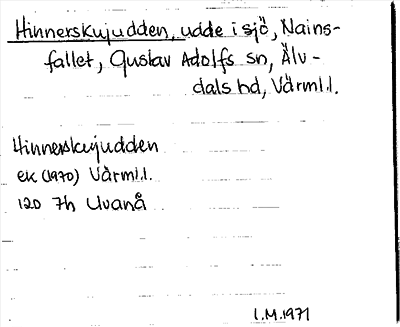 Hinnerskujudden, udde i sjö, Nains-
fallet, Gustav Adolfs sn, Älv-
dals hd, Värml.l.
Hinnerskujudden
ek (1970) Värml.l.
120 7h Uvanå
I.M.1971